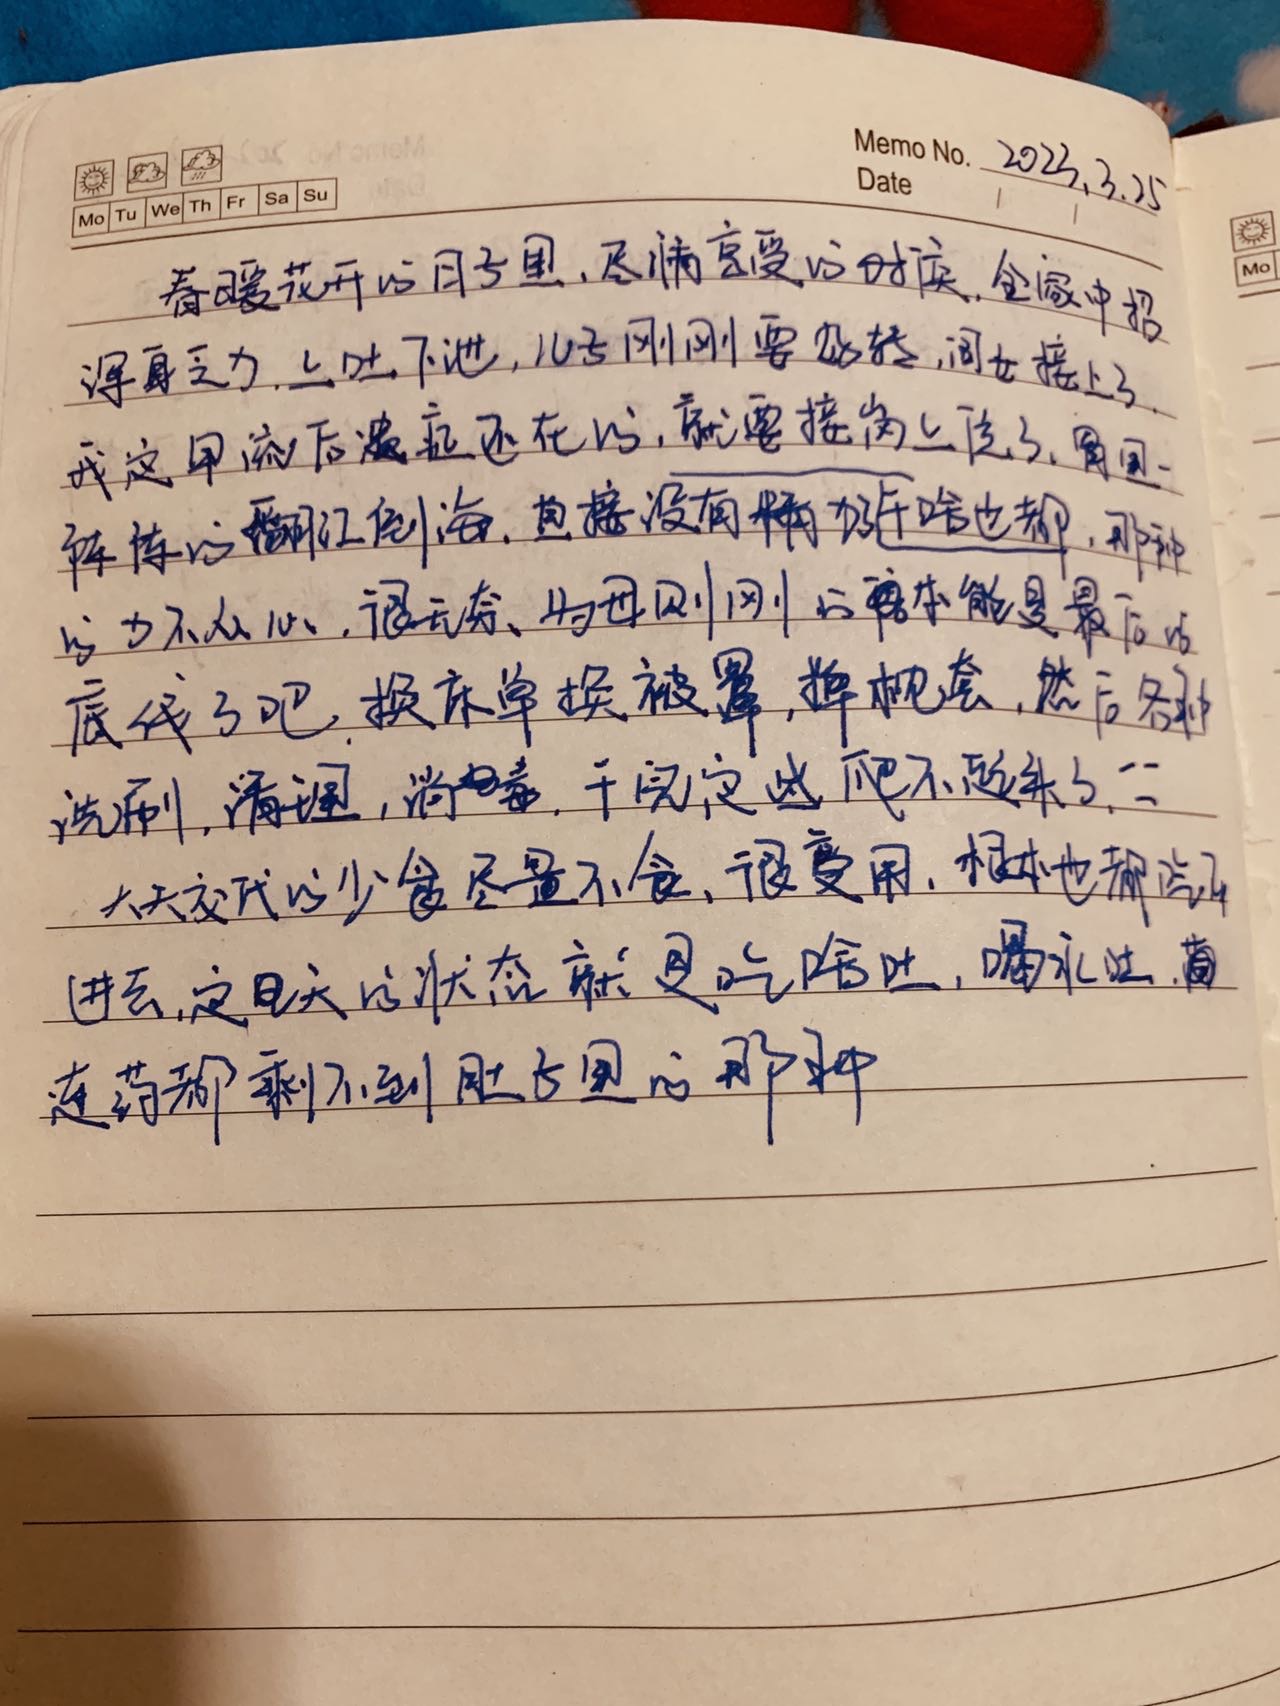 Memo No. 2023.3.25
Date
Mo Tu We Th Fr Sa Su
Mo
春暖花开的日子里,尽情享受的时候,全家中招
浑身乏力,上吐下泄,儿子刚刚要好转,闺女接上了,
我这甲流后遗症还在的,就要接岗上位了,胃里一
阵阵的翻江倒海,直接没有精力干啥也都,那种
的力不从心,很无奈、为母则刚的本能是最后的
底线了吧,换床单换被罩,掉枕套,然后各种
洗刷,清理,消毒,干完这些爬不起来了,二
大夫交代的少食尽量不食、很受用,根本也都吃不
进去,这几天的状态就是吃啥吐,喝水吐,
连药都剩不到肚子里的那种